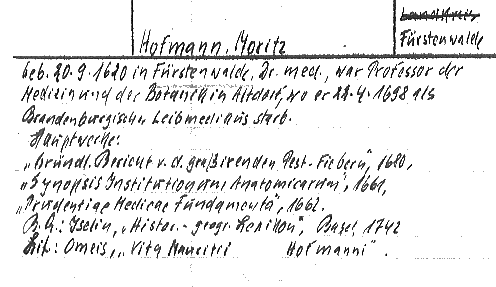 Landkreis
Hofmann, Moritz
Fürstenwalde
Geb. 20.9.1620 in Fürstenwalde, Dr. med., war Professor der
Medizin und der Botanik in Altdorf, wo er 22.4.1698 als
Brandenburgischer Leibmedicus starb.
Hauptwerke:
„Gründl. Bericht v. d. graßirenden Pest-Fiebern“, 1680,
„Synopsis Institutionum Anatomicarum“, 1661,
„Prudentiae Medicae fundamenta“, 1662.
B.Q.: Iselin, „Histor.-geogr. Lexikon“, Basel 1742
Lit.: Omeis, „Vita Mauritii Hofmanni“.